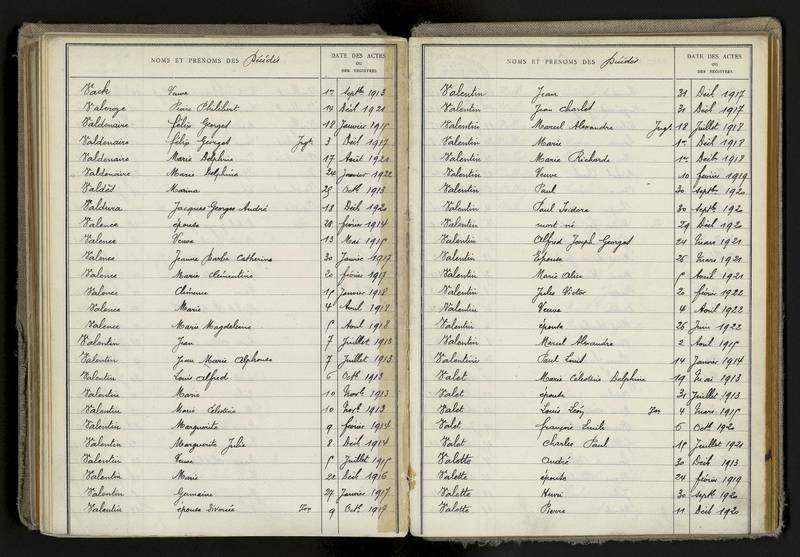 NOMS ET PRÉNOMS DES Décédés
DATE DES ACTES
OU
DES REGISTRES
Vack Veuve 1er Septb 1913
Valdenaire Félix Georges 18 Janvier 1915
Valdenaire Félix Georges Jugt 3 Déc 1917
Valdenaire Marie Delphine 17 Août 1920
Valdenaire Marie Delphine 24 Janvier 1922
Valdès Marina 28 Octb 1913
Jacques Georges André 18 Déc 1920
Valence épouse 28 février 1914
Valence Veuve 13 Mai 1915
Valence Jeanne Barbe Catherine 30 Janvier 1917
Valence Marie Clémentine 20 février 1917
Valence Clémence 15 Janvier 1918
Valence Marie 4 Avril 1918
Valence Marie Magdeleine 5 Avril 1918
Valentin Jean 7 Juillet 1913
Valentin Jean Marie Alphonse 7 Juillet 1913
Valentin Louis Alfred 6 Octb 1913
Valentin Marie 10 Novb 1913
Valentin Marie Célestine 10 Novb 1913
Valentin Marguerite 9 février 1914
Valentin Marguerite Julie 8 Déc 1914
Valentin Veuve 5 Juillet 1915
Valentin Marie 22 Déc 1916
Valentin Germaine 27 Janvier 1917
Valentin épouse divorcée 9 Octb 1917
NOMS ET PRÉNOMS DES Décédés
DATE DES ACTES
OU
DES REGISTRES
Valentin Jean 31 Déc 1917
Valentin Jean Charles 31 Déc 1917
Valentin Marcel Alexandre Jugt 18 Juillet 1918
Valentin Marie 1er Déc 1918
Valentin Marie Richarde 1er Déc 1918
Valentin Veuve 10 février 1919
Valentin Paul 30 Septb 1920
Valentin Paul Isidore 30 Septb 1920
Valentin mort né 29 Déc 1920
Valentin Alfred Joseph Georges 24 Mars 1921
Valentin Epouse 26 Mars 1921
Valentin Marie Alice 5 Avril 1921
Valentin Jules Victor 20 février 1922
Valentin Veuve 4 Avril 1922
Valentin épouse 26 Juin 1922
Valentin Marcel Alexandre 2 Août 1915
Valentini Paul Louis 14 Janvier 1914
Valet Marie Célestine Delphine 19 Mai 1913
Valet épouse 31 Juillet 1913
Valet Louis Léon 4 Mars 1915
Valet François Emile 6 Octb 1920
Valet Charles Paul 15 Juillet 1921
Valette André 30 Déc 1913
Valette épouse 24 février 1919
Valette Henri 30 Septb 1920
Valette Pierre 11 Déc 1920